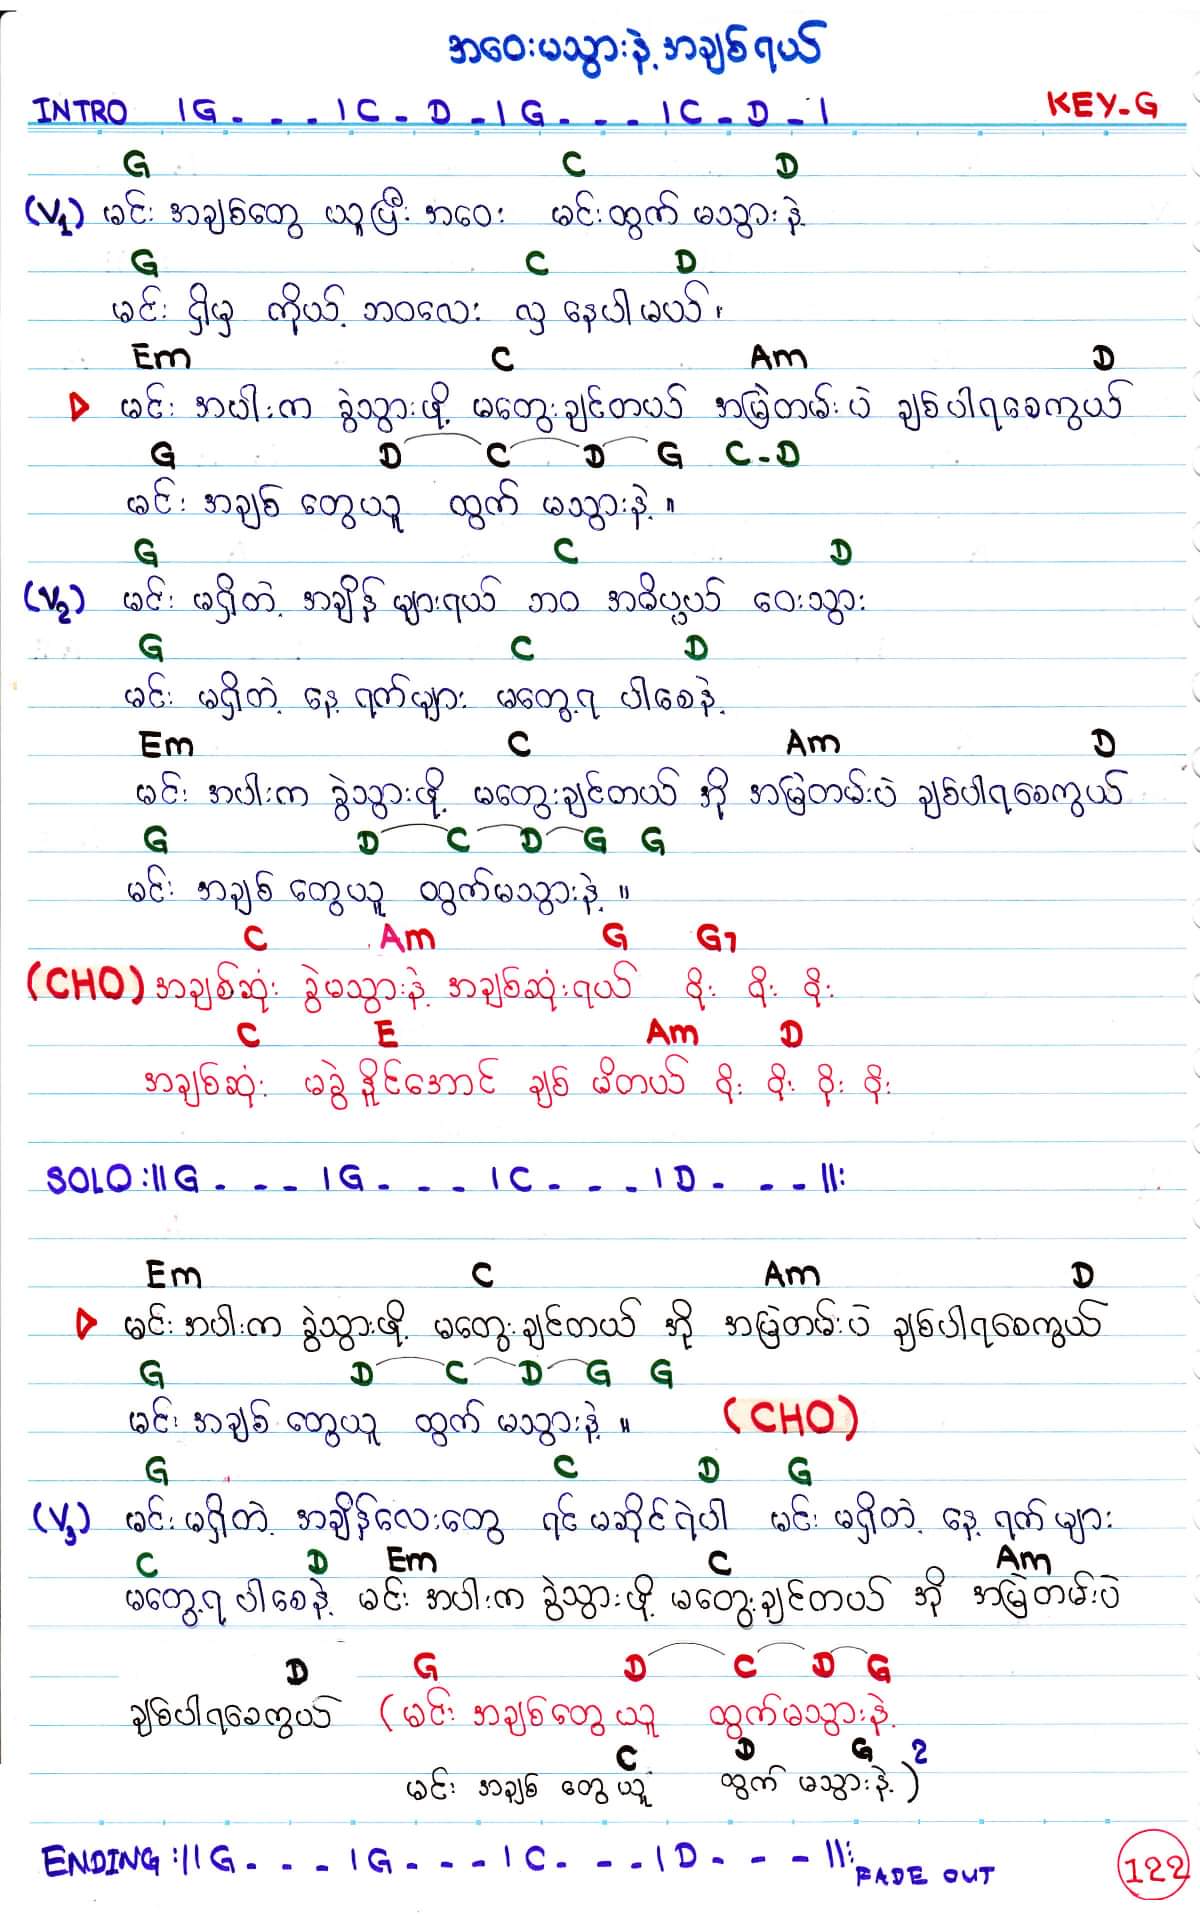 အဝေးမသွားနဲ့ အချစ်ရယ်
INTRO |G - - - |C - D - |G - - - |C - D - | KEY-G
G C D
(V1) မင်း အချစ်တွေ ယူပြီး အဝေး မင်းထွက် မသွားနဲ့
G C D
မင်း ရှိမှ ကိုယ့် ဘဝလေး လှ နေပါမယ်။
Em C Am D
မင်း အပါးက ခွဲသွားဖို့ မတွေးချင်တယ် အမြဲတမ်းပဲ ချစ်ပါရစေကွယ်
G D C D G C-D
မင်း အချစ် တွေယူ ထွက် မသွားနဲ့ ။
G C D
(V2) မင်း မရှိတဲ့ အချိန် များရယ် ဘဝ အဓိပ္ပယ် ဝေးသွား
G C D
မင်း မရှိတဲ့ နေ့ ရက်များ မတွေ့ရ ပါစေနဲ့
Em C Am D
မင်း အပါးက ခွဲသွားဖို့ မတွေးချင်တယ် အို အမြဲတမ်းပဲ ချစ်ပါရစေကွယ်
G D C D G G
မင်း အချစ် တွေယူ ထွက်မသွားနဲ့ ။
C Am G G7
(CHO) အချစ်ဆုံး ခွဲမသွားနဲ့ အချစ်ဆုံးရယ် ဗိုး ဗိုး ဗိုး
C E Am D
အချစ်ဆုံး မခွဲ နိုင်အောင် ချစ် မိတယ် ဗိုး ဗိုး ဗိုး ဗိုး
SOLO :|| G - - - | G - - - | C - - - | D - - - ||:
Em C Am D
မင်း အပါးက ခွဲသွားဖို့ မတွေးချင်တယ် အို အမြဲတမ်းပဲ ချစ်ပါရစေကွယ်
G D C D G G
မင်း အချစ် တွေယူ ထွက် မသွားနဲ့ ။ (CHO)
G C D G
(V3) မင်း မရှိတဲ့ အချိန်လေးတွေ ရင် မဆိုင်ရဲပါ မင်း မရှိတဲ့ နေ့ ရက် များ
C D Em C Am
မတွေ့ရ ပါစေနဲ့ မင်း အပါးက ခွဲသွားဖို့ မတွေးချင်တယ် အို အမြဲတမ်းပဲ
D G D C D G
ချစ်ပါရစေကွယ် (မင်း အချစ်တွေ ယူ ထွက်မသွားနဲ့
C D G 2
မင်း အချစ် တွေ ယူ ထွက် မသွားနဲ့ )
ENDING :|| G - - - | G - - - | C - - - | D - - - ||: FADE OUT
122